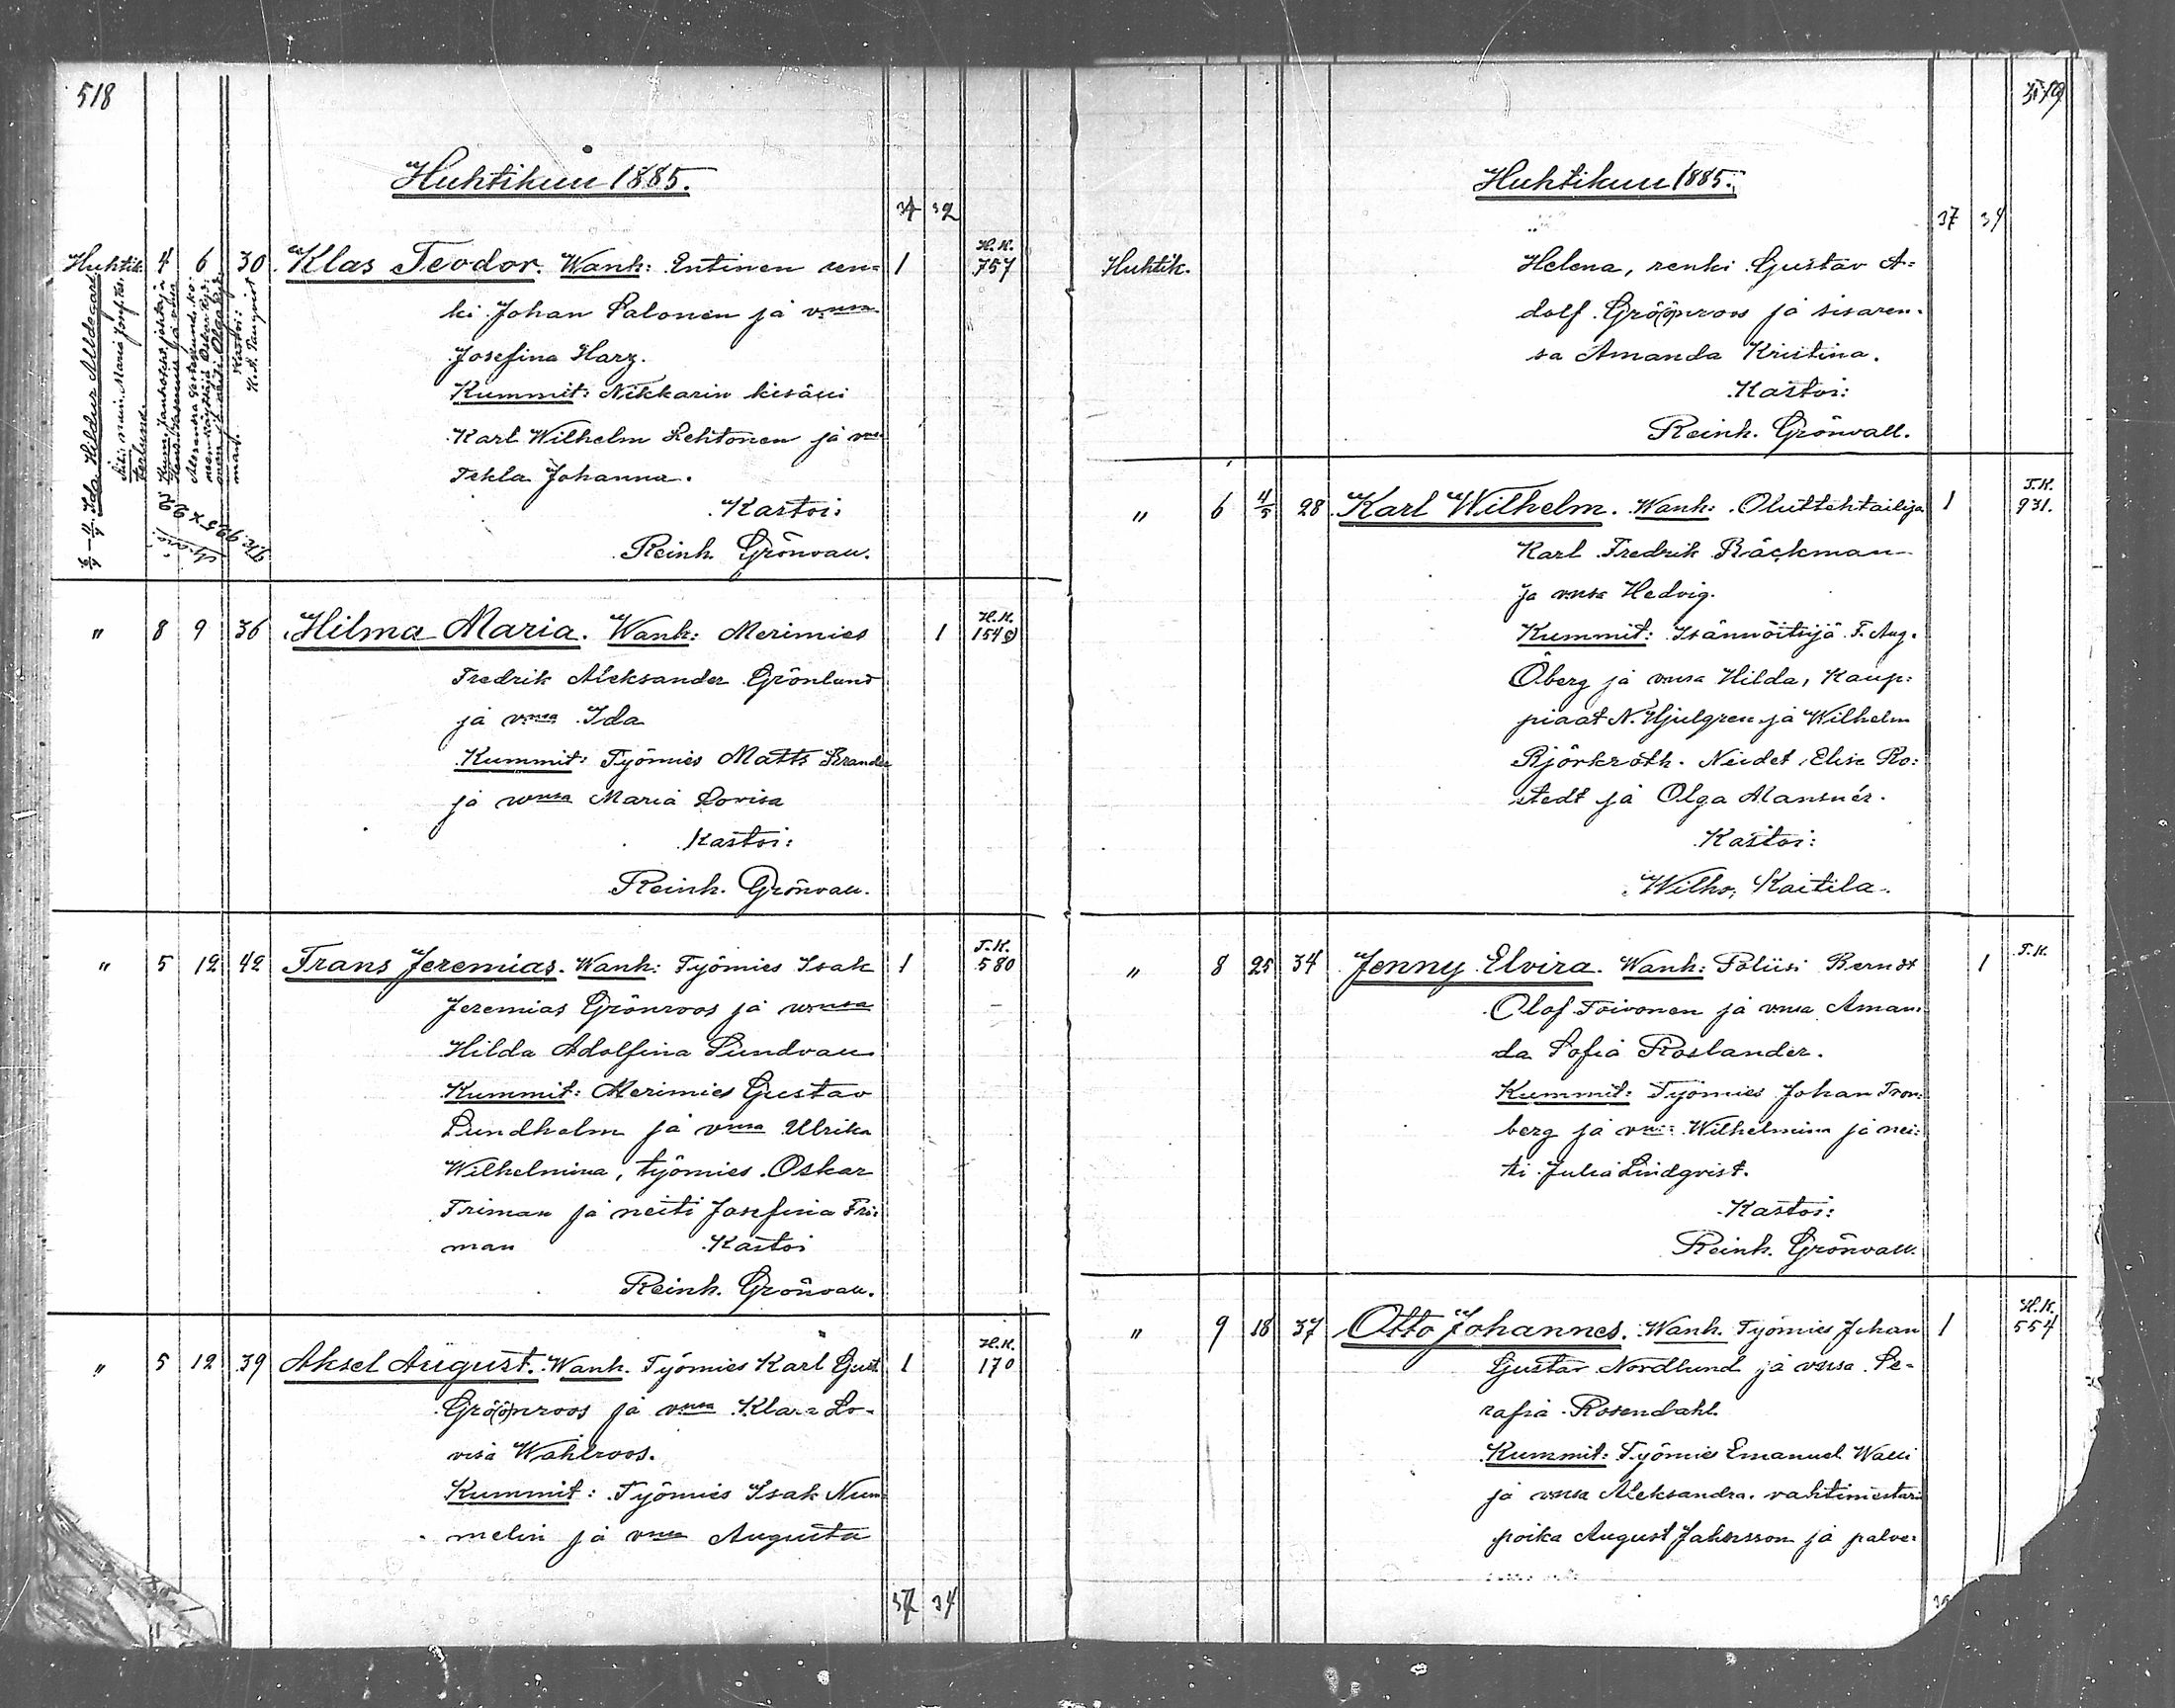 518
Huhtikuu 1885.
34 32
Huhtik. 4 6 30 Klas Teodor. Wanh: Entinen ren= 1 H.K. 757
ki Johan Salonen ja vmsa
Josefina Harz.
Kummit: Nikkarin kisälli
Karl Wilhelm Lehtonen ja vmsa
Tekla Johanna.
Kastoi:
Reinh. Grönvall.
Ida Hildur Alldegard
" 8 9 36 Hilma Maria. Wanh: Merimies 1 H.K. 1549
Fredrik Aleksander Grönlund
ja vmsa Ida
Kummit: Työmies Matts Brander
ja vmsa Maria Lovisa
Kastoi:
Reinh. Grönvall.
" 5 12 42 Frans Jeremias. Wanh: Työmies Isak 1 T.K. 580
Jeremias Grönroos ja vmsa
Hilda Adolfina Sundvall
Kummit: Merimies Gustav
Lundholm ja vmsa Ulrika
Wilhelmina, työmies Oskar
Friman ja neiti Josefina Fri=
man Kastoi
Reinh. Grönvall.
" 5 12 39 Aksel August. Wanh. Työmies Karl Gust. 1 H.K. 170
Grö(ö)nroos ja vmsa Klara Lo-
visa Wahlroos.
Kummit: Työmies Isak Num=
melin ja vmsa Augusta
37 34
519
Huhtikuu 1885.
37 34
Huhtik. Helena, renki Gustav A=
dolf Grö(ö)nroos ja sisaren-
sa Amanda Kristina.
Kastoi:
Reinh. Grönvall.
" 6 4/5 28 Karl Wilhelm. Wanh: Oluttehtailija 1 T.K. 931.
Karl Fredrik Bäckman
ja vmsa Hedvig.
Kummit: Isännöitsijä F. Aug.
Öberg ja vmsa Hilda, Kaup=
piaat N. Hjulgren ja Wilhelm
Björkroth. Neidet Elise Ro=
stedt ja Olga Alansnér.
Kastoi:
Wilho, Kaitila.
" 8 25 34 Jenny Elvira. Wanh: Poliisi Berndt 1 T.K.
Olof Toivonen ja vmsa Aman=
da Sofia Roslander.
Kummit: Työmies Johan Tron=
berg ja vmsa Wilhelmina ja nei=
ti Julia Lindqvist.
Kastoi:
Reinh. Grönvall.
" 9 18 37 Otto Johannes. Wanh. Työmies Johan 1 H.K. 554
Gustav Nordlund ja vmsa Se-
rafia Rosendahl.
Kummit: Työmies Emanuel Walli
ja vmsa Aleksandra. vahtimestarin
poika August Jakobsson ja palve=